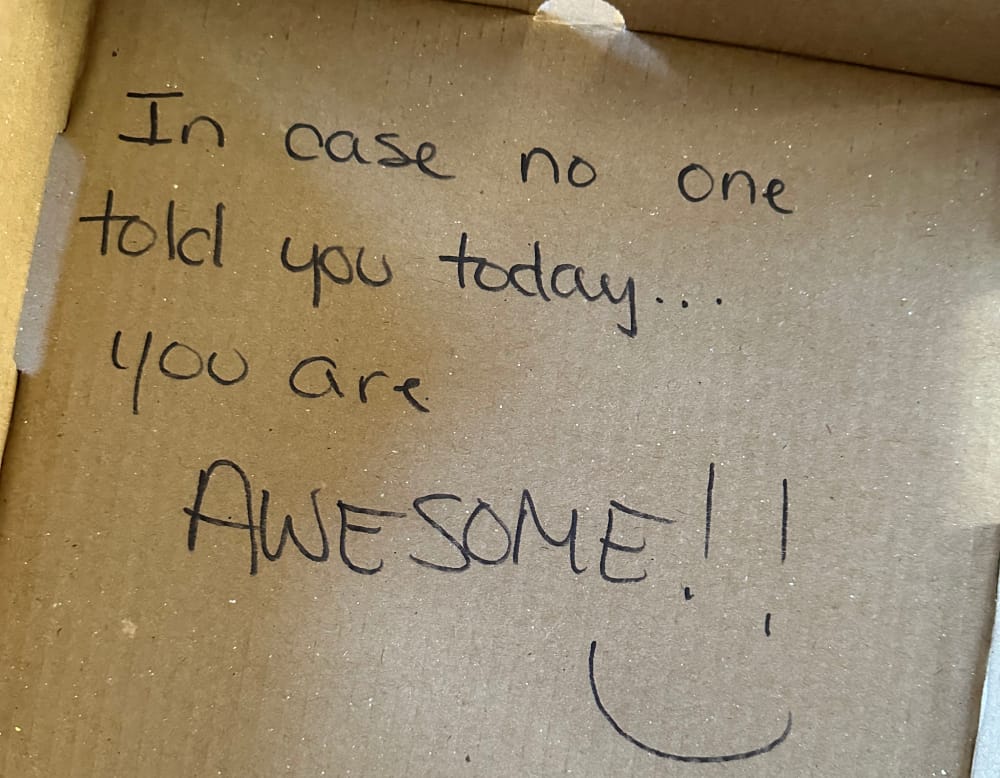 In case no one
told you today...
you are
AWESOME!!